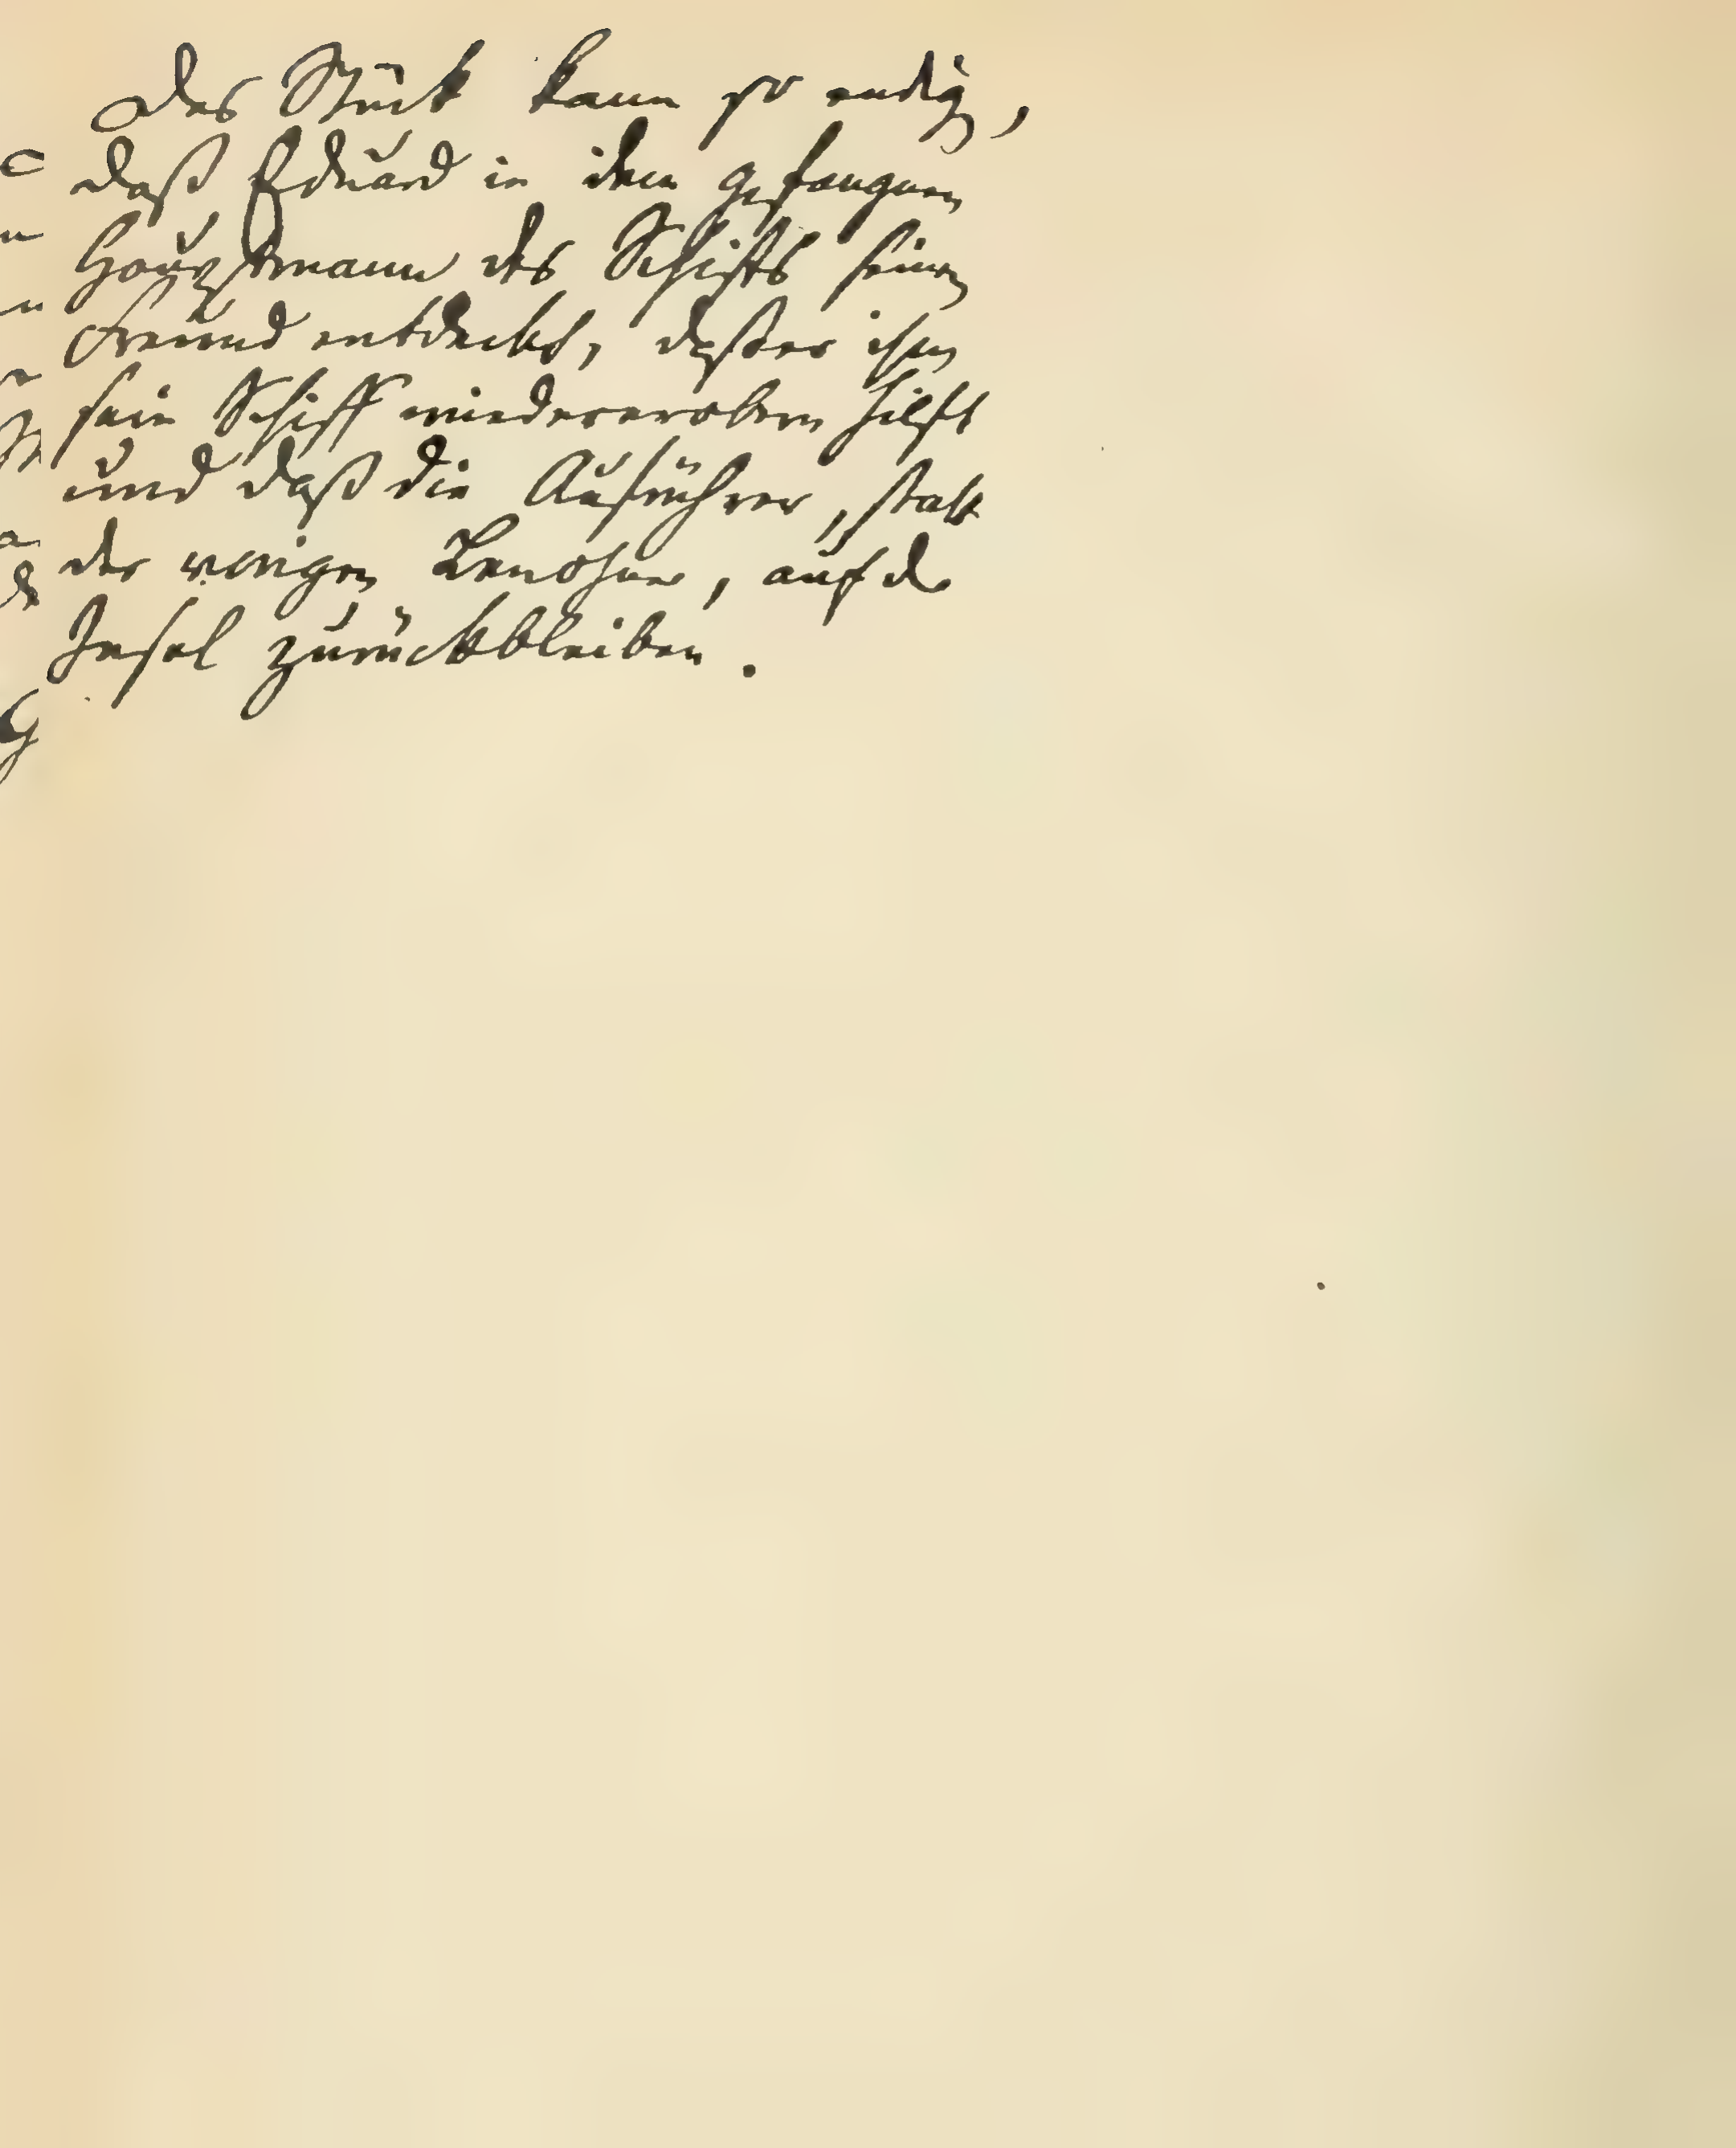 Das Stück kann so endigen,
daß Eduard in dem gefangnen
Hauptmann des Schiffs seinen
Freund entdeckt, daß er ihm
sein Schiff wiedererobern hilft
und daß die Aufrührer, statt
der vorigen Bewohner, auf der
Insel zurückbleiben.